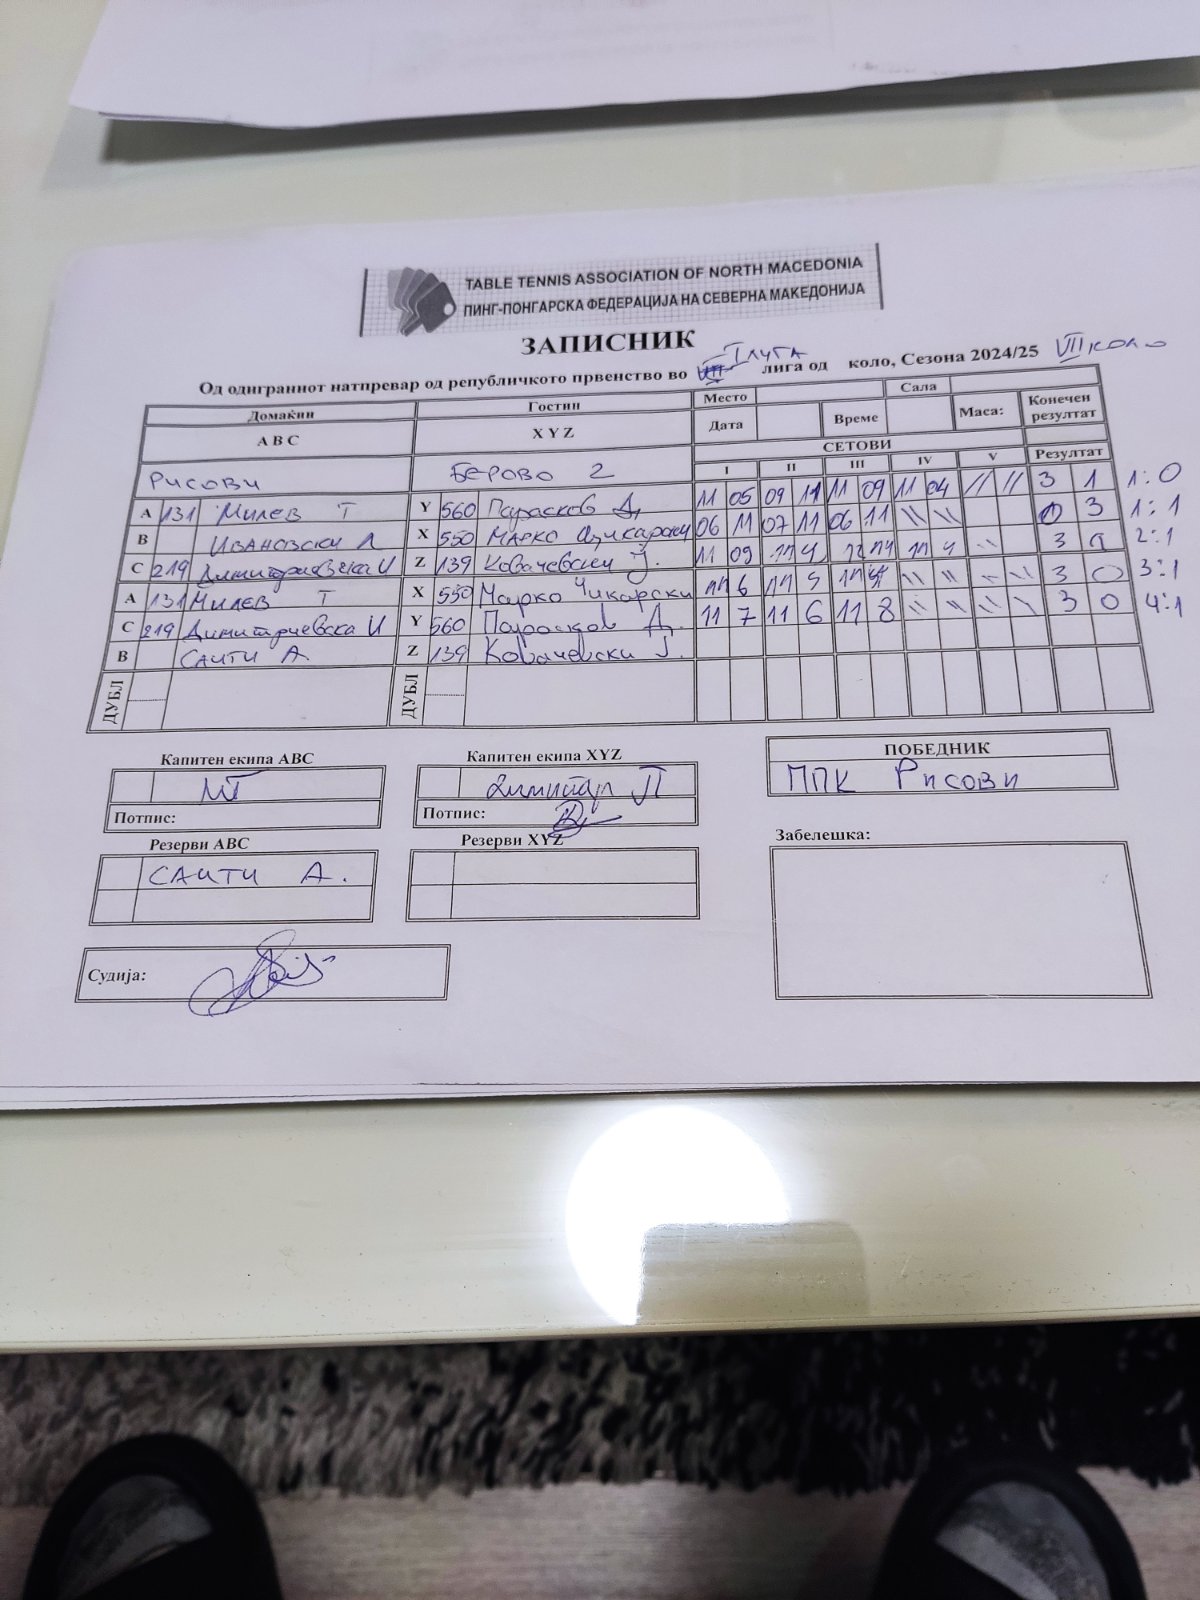 TABLE TENNIS ASSOCIATION OF NORTH MACEDONIA
ПИНГ-ПОНГАРСКА ФЕДЕРАЦИЈА НА СЕВЕРНА МАКЕДОНИЈА
ЗАПИСНИК
Од одиграниот натпревар од републичкото првенство во I лига од коло, Сезона 2024/25 VII коло
Домаќин Гостин Место Сала Конечен резултат
A B C X Y Z Дата Време Маса:
СЕТОВИ
I II III IV V Резултат
Рисови Берово 2
A 131 Милев Т Y 560 Парасков Д. 11 05 09 11 11 09 11 04 // // 3 1 1:0
B Ивановски Л X 550 Марко 06 11 07 11 06 11 \\ \\ 0 3 1:1
C 219 Димитриевска И Z 139 Ковачевски Ј. 11 09 3 2:1
A 131 Милев Т X 550 Марко Чикарски 11 6 11 11 \\ \\ \\ \\ 3 0 3:1
C 219 Димитриевска И Y 560 Парасков Д. 11 7 11 6 11 8 \\ \\ \\ \\ 3 0 4:1
B Саити А. Z 139 Ковачевски Ј.
ДУБЛ ДУБЛ
Капитен екипа ABC Капитен екипа XYZ ПОБЕДНИК
МТ Димитар П ППК Рисови
Потпис: Потпис:
Резерви ABC Резерви XYZ Забелешка:
Саити А.
Судија: